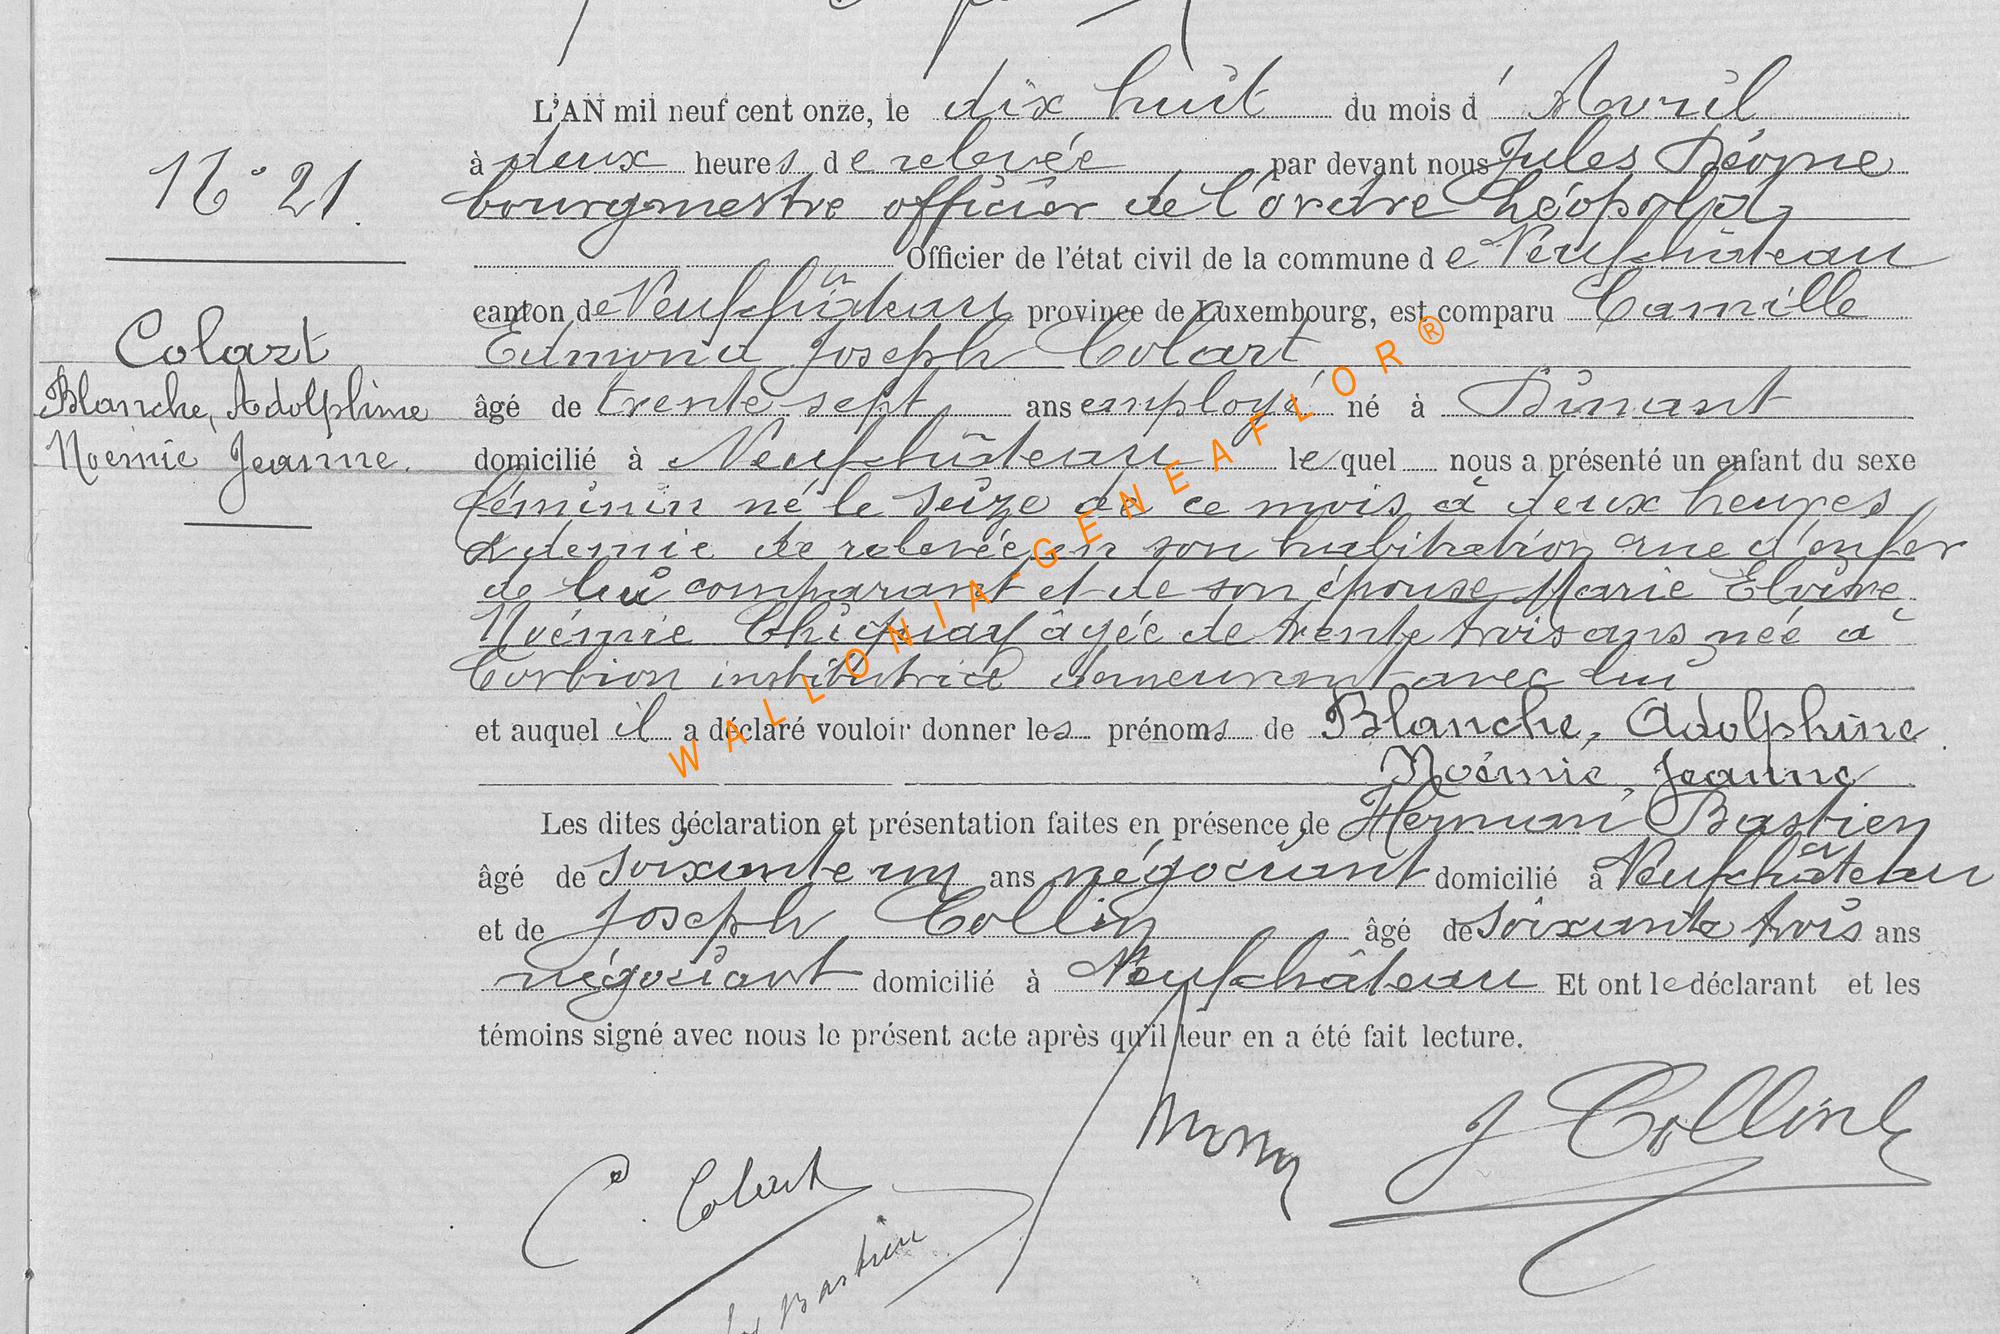 L'AN mil neuf cent onze, le dix huit du mois d' Avril
N° 21
à deux heures de relevée par devant nous Jules
bourgmestre officier de l'ordre Léopold
Officier de l'état civil de la commune de Neufchâteau
canton de Neufchâteau province de Luxembourg, est comparu Camille
Colart
Edmond Joseph Colart
Blanche, Adolphine
âgé de trente sept ans employé né à Dinant
Noémie Jeanne.
domicilié à Neufchâteau lequel nous a présenté un enfant du sexe
féminin né le seize de ce mois à deux heures
& demie de relevée en son habitation rue d'enfer
de lui comparant et de son épouse Marie Elvire
Noémie Chiquay âgée de trente trois ans née à
Corbion institutrice demeurant avec lui
et auquel il a déclaré vouloir donner les prénoms de Blanche, Adolphine
Noémie, Jeanne
Les dites déclaration et présentation faites en présence de Hernani Bastien
âgé de soixante un ans négociant domicilié à Neufchâteau
et de Joseph Collin âgé de soixante trois ans
négociant domicilié à Neufchâteau Et ont le déclarant et les
témoins signé avec nous le présent acte après qu'il leur en a été fait lecture.
J Collin
C. Colart
Bastien
WALLONIA-GENEAFLOR®